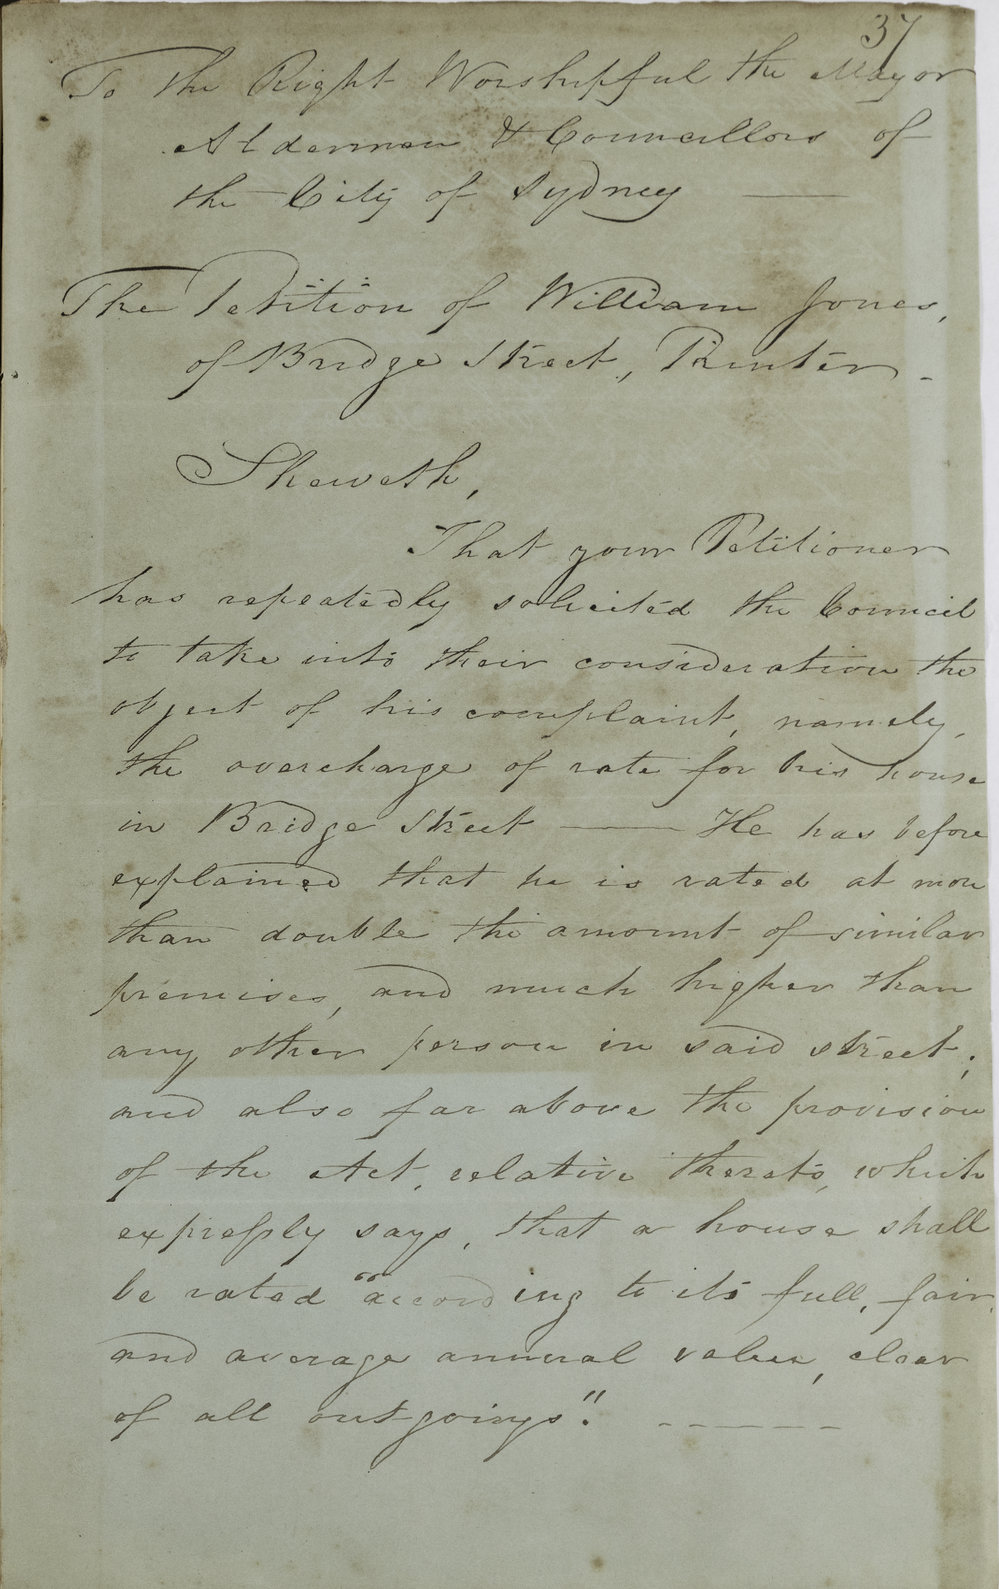 37
To the Right Worshipful the Mayor
Aldermen & Councillors of
the City of Sydney —
The Petition of William Jones,
of Bridge Street, Printer -
Sheweth,
That your Petitioner
has repeatedly solicited the Council
to take into their consideration the
object of his complaint, namely,
the overcharge of rate for his house
in Bridge Street — He has before
explained that he is rated at more
than double the amount of similar
premises, and much higher than
any other person in said street;
and also far above the provision
of the Act, relative thereto, which
expressly says, that a house shall
be rated "according to its full, fair,
and average annual value, clear
of all outgoings". - - - - -